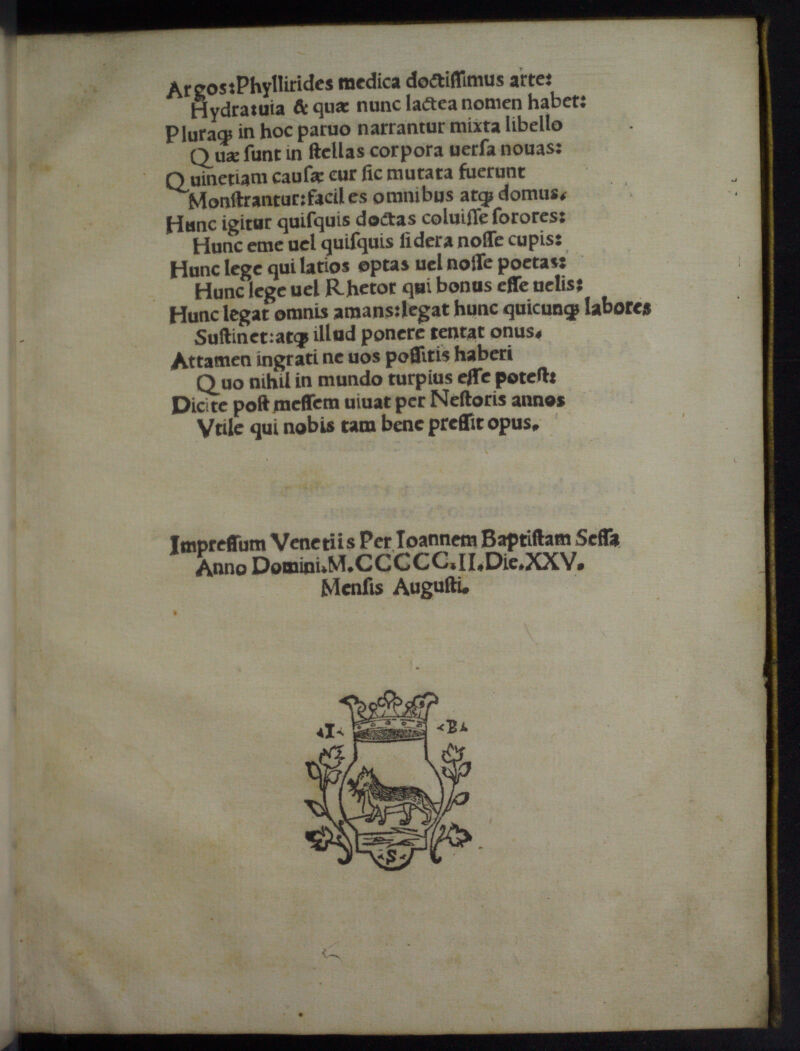 Argos:Phyllirides medica doctiſſimus arte:
Hydra:uia & quæ nunc lactea nomen habet:
Pluraqꝫ in hoc paruo narrantur mixta libello
Quæ ſunt in ſtellas corpora uerſa nouas:
Quinetiam cauſæ cur ſic mutata fuerunt
Monſtrantur:faciles omnibus atqꝫ domus.
Hunc igitur quiſquis doctas coluiſſe ſorores:
Hunc eme uel quiſquis ſidera noſſe cupis:
Hunc lege qui latios optas uel noſſe poetas:
Hunc lege uel Rhetor qui bonus eſſe uelis:
Hunc legat omnis amans:legat hunc quicunqꝫ labores
Suſtinet:atqꝫ illud ponere tentat onus.
Attamen ingrati ne uos poſſitis haberi
Quo nihil in mundo turpius eſſe poteſt:
Dicite poſt meſſem uiuat per Neſtoris annos
Vtile qui nobis tam bene preſſit opus.
Impreſſum Venetiis Per Ioannem Baptiſtam Seſſa
Anno Domini.M.CCCCC.II.Die.XXV.
Menſis Auguſti.
I B
S